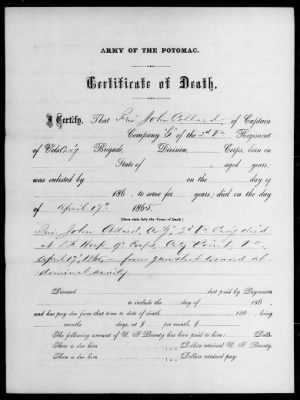 ARMY OF THE POTOMAC.
Certificate of Death.
I Certify, That Priv John Allard of Captain
Company "G" of the 2d Vt Regiment
of Vols Brigade, Division, Corps, born in
State of , aged years;
was enlisted by on the day of
186 , to serve for years; died on the day
of April 17th 1865
(Here state fully the Cause of Death.)
Priv John Allard, Co G, 2d Vt died
at Hosp. Corps, City Point, Va.
April 17, 1865 from gunshot wound
abdominal cavity
Deceased last paid by Paymaster
to include the day of 186 ,
and has pay due from that time to date of death, 186 , being
months days, at $ per month, $
The following amount of U. S. Bounty has been paid to him: Dolls.
There is due him Dollars retained U. S. Bounty.
There is due him Dollars retained pay.